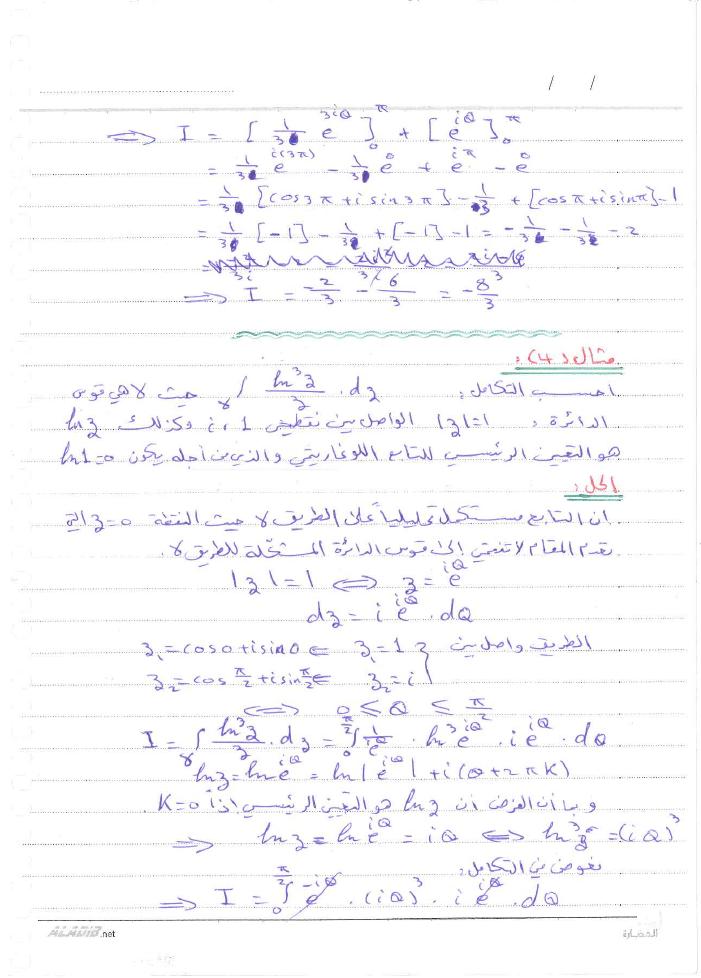 / /
⇒ I = [ 1/3 e^{3iθ} ]_0^π + [ e^{iθ} ]_0^π
= 1/3 e^{i(3π)} - 1/3 e^0 + e^{iπ} - e^0
= 1/3 [cos3π + i sin3π] - 1/3 + [cosπ + i sinπ] - 1
= 1/3 [-1] - 1/3 + [-1] - 1 = -1/3 - 1/3 - 2
⇒ I = -2/3 - 6/3 = -8/3
مثال (4):
احسب التكامل: ∫_γ ln³z/z . dz حيث γ هي قوس
الدائرة: |z|=1 الواصل بين نقطتين 1 , i وكذلك ln z
هو التعيين الرئيسي للتابع اللوغاريتمي والذي من أجله يكون ln1=0
الحل:
ان التابع مستكمل تحليلياً على الطريق γ حيث النقطة z=0 التي
تعدم المقام لا تنتمي إلى قوس الدائرة المشكّلة للطريق γ.
|z| = 1 ⇔ z = e^{iθ}
dz = i e^{iθ} . dθ
الطريق واصل بين z₁=1 ⇐ z₁=cos0+isin0
z₂=i ⇐ z₂=cos π/2 + i sin π/2
⇔ 0 ≤ θ ≤ π/2
I = ∫_γ ln³z/z . dz = ∫_0^{π/2} 1/e^{iθ} . ln³e^{iθ} . i e^{iθ} . dθ
ln z = ln e^{iθ} = ln|e^{iθ}| + i(θ+2πK)
وبما أن الفرض أن ln z هو التعيين الرئيسي إذاً K=0.
⇒ ln z = ln e^{iθ} = iθ ⇔ ln³z = (iθ)³
نعوض في التكامل:
⇒ I = ∫_0^{π/2} e^{-iθ} . (iθ)³ . i e^{iθ} . dθ
ALADIB.net
الحضارة